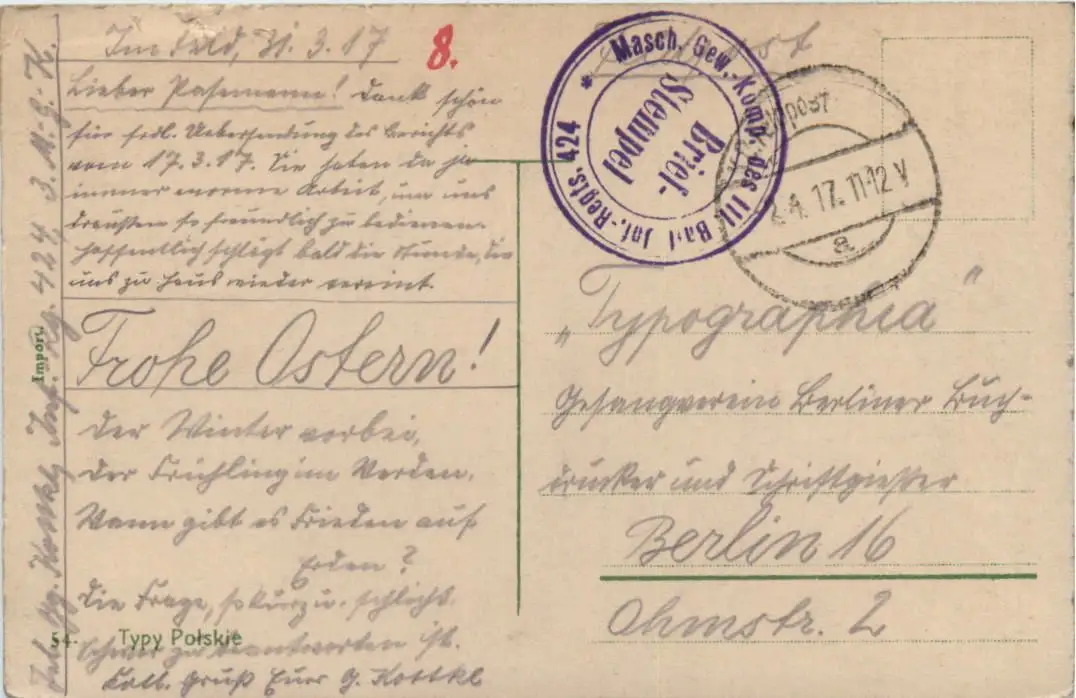 Im Feld, 31. 3. 17
8.
Lieber Pasemann! Dank schön
für frdl. Uebersendung des Berichts
vom 17.3.17. Sie haben da ja
immer enorme Arbeit, um uns
draußen so freundlich zu bedienen.
Hoffentlich schlägt bald die Stunde, die
uns zu Haus wieder vereint.
Frohe Ostern!
Der Winter vorbei,
Der Frühling im Werden.
Wann gibt es Frieden auf
Erden?
Die Frage, so kurz u. schlicht
schwer zu beantworten ist.
Gruß Euer G. Kottke
Kottke, Inf. Rg. 424, 3. M.-G.-K.
Import.
54. Typy Polskie
Masch. Gew.-Komp. des III. Batl Inf.-Regts. 424 *
Brief-
Stempel
4. 17. 11-12 V
a
„Typographia“
Gesangverein Berliner Buch-
drucker und Schriftgießer
Berlin 16
Ohmstr. 2